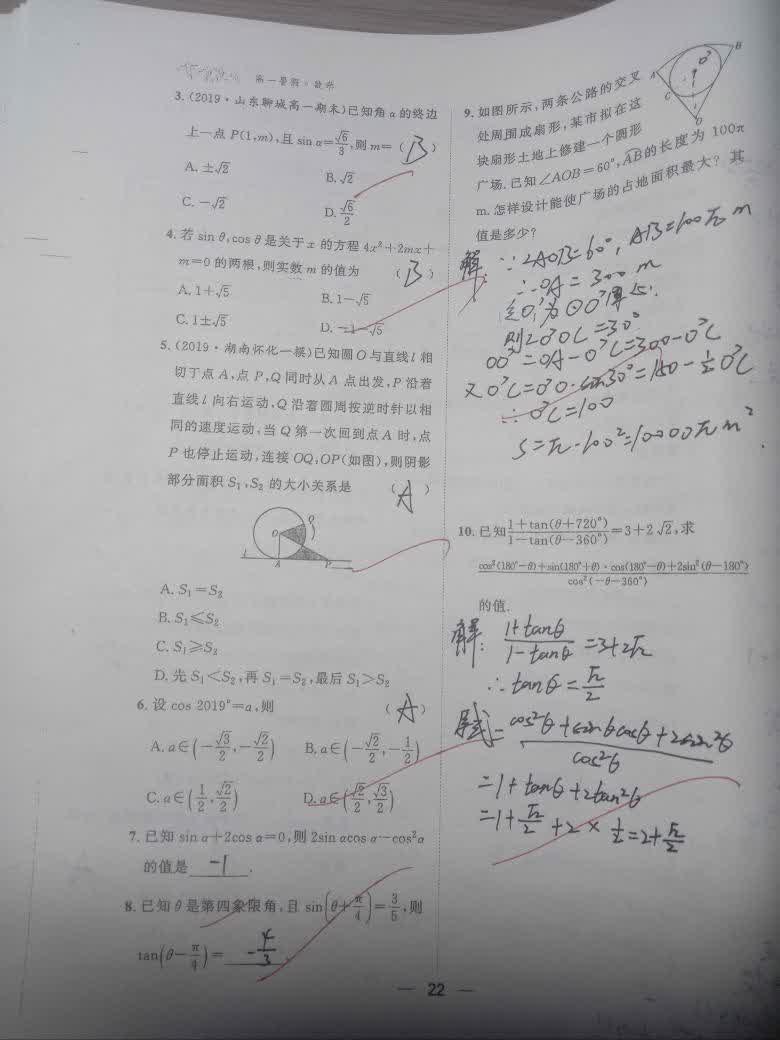 高一暑假·数学
3.(2019·山东聊城高一期末)已知角α的终边
上一点P(1,m),且sin α=√6/3,则m=( B )
A.±√2
B.√2
C.-√2
D.√6/2
4.若sin θ,cos θ是关于x的方程4x²+2mx+
m=0的两根,则实数m的值为 ( B )
A.1+√5
B.1-√5
C.1±√5
D.-1-√5
5.(2019·湖南怀化一模)已知圆O与直线l相
切于点A,点P,Q同时从A点出发,P沿着
直线l向右运动,Q沿着圆周按逆时针以相
同的速度运动,当Q第一次回到点A时,点
P也停止运动,连接OQ,OP(如图),则阴影
部分面积S₁,S₂的大小关系是 ( A )
O
Q
l
A
P
A.S₁=S₂
B.S₁≤S₂
C.S₁≥S₂
D.先S₁<S₂,再S₁=S₂,最后S₁>S₂
6.设cos 2019°=a,则 ( A )
A.a∈(-√3/2,-√2/2)
B.a∈(-√2/2,-1/2)
C.a∈(1/2,√2/2)
D.a∈(√2/2,√3/2)
7.已知sin α+2cos α=0,则2sin αcos α-cos²α
的值是 -1 .
8.已知θ是第四象限角,且sin(θ+π/4)=3/5,则
tan(θ-π/4)= -4/3 .
9.如图所示,两条公路的交叉
处周围成扇形,某市拟在这
块扇形土地上修建一个圆形
广场.已知∠AOB=60°,AB的长度为100π
m.怎样设计能使广场的占地面积最大?其
值是多少?
A
B
O'
C
O
解 ∵∠AOB=60°,AB=100π m
∴OA=300 m
则∠O'OC=30°
OO'=OA-O'C=300-O'C
又O'C=O'O·sin30°=150-1/2 O'C
∴O'C=100
S=π·100²=10000π m²
10.已知1+tan(θ+720°)/1-tan(θ-360°)=3+2√2,求
cos²(180°-θ)+sin(180°+θ)·cos(180°-θ)+2sin²(θ-180°)/cos²(-θ-360°)
的值.
解: 1+tanθ/1-tanθ=3+2√2
∴tanθ=√2/2
原式=cos²θ+sinθcosθ+2sin²θ/cos²θ
=1+tanθ+2tan²θ
=1+√2/2+2×1/2=2+√2/2
22